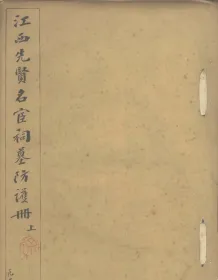 江西先贤名宦祠墓防護冊 上